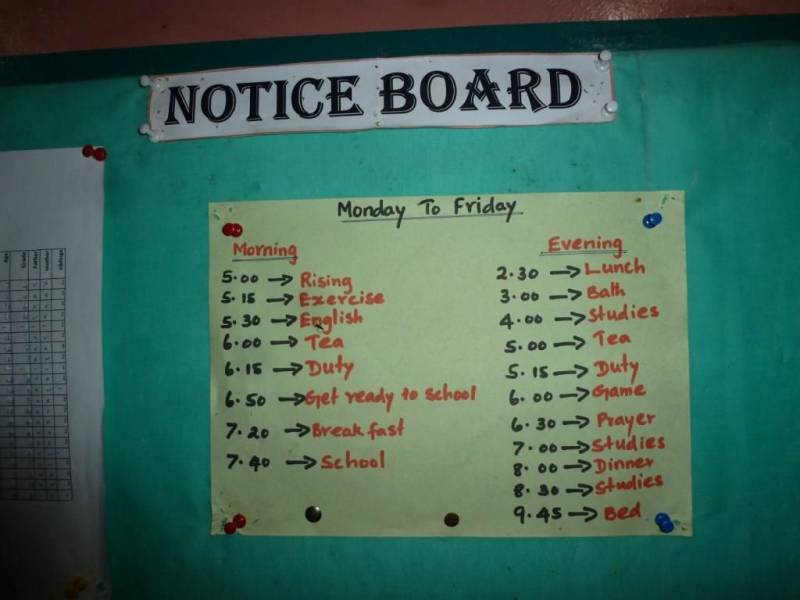 NOTICE BOARD
Monday To Friday
Morning
5.00 → Rising
5.15 → Exercise
5.30 → English
6.00 → Tea
6.15 → Duty
6.50 → Get ready to school
7.20 → Breakfast
7.40 → School
Evening
2.30 → Lunch
3.00 → Bath
4.00 → Studies
5.00 → Tea
5.15 → Duty
6.00 → Game
6.30 → Prayer
7.00 → Studies
8.00 → Dinner
8.30 → Studies
9.45 → Bed